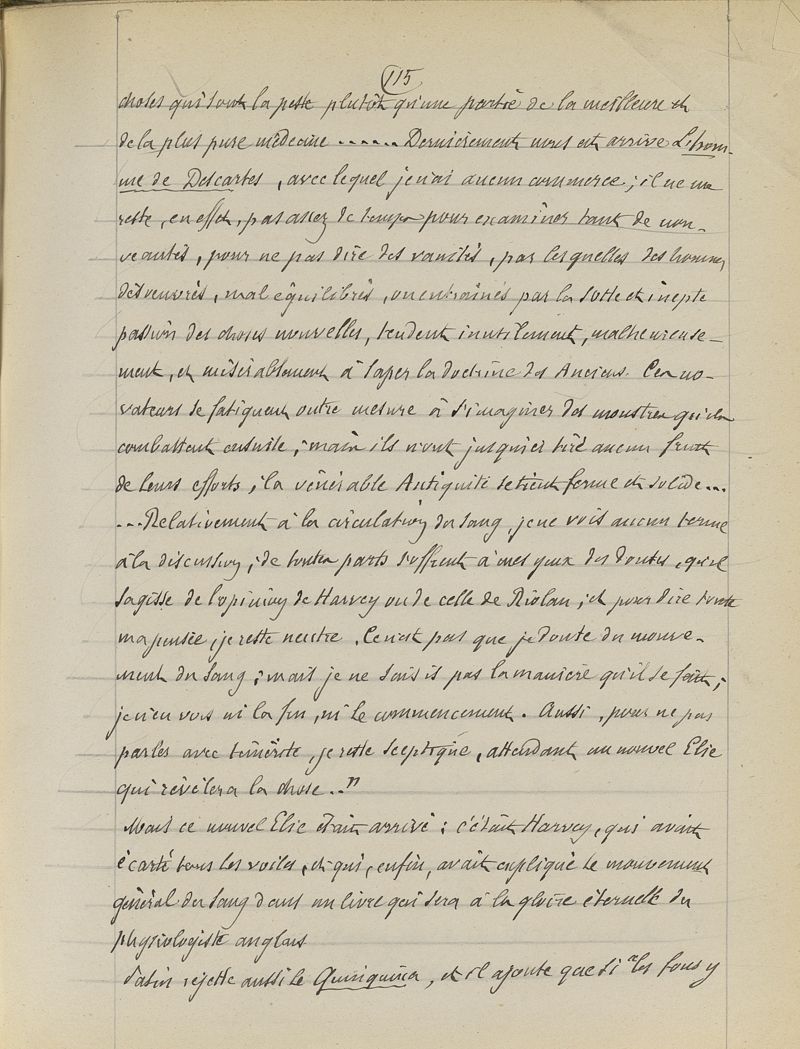 115
choses qui sont la peste plutôt qu'une partie de la meilleure et
de la plus pure médecine ...... Dernièrement nous est arrivé L'hom-
me de Descartes, avec lequel je n'ai aucun commerce ; il ne me
reste, en effet, pas assez de temps pour examiner tant de nou-
veautés, pour ne pas dire des vanités, par lesquelles des hommes
désœuvrés, mal équilibrés, ou entraînés par la sotte et inepte
passion des choses nouvelles, tendent inutilement, malheureuse-
ment, et misérablement à saper la doctrine des Anciens. Ces no-
vateurs se fatiguent outre mesure à s'imaginer des monstres qu'ils
combattent ensuite ; mais ils n'ont jusqu'ici tiré aucun fruit
de leurs efforts ; la vénérable Antiquité se tient ferme et solide...
...Relativement à la circulation du sang, je ne vois aucun terme
à la discussion ; de toutes parts s'offrent à mes yeux des doutes, qu'il
s'agisse de l'opinion de Harvey ou de celle de Riolan ; et pour dire toute
ma pensée, je reste neutre. Ce n'est pas que je doute du mouve-
ment du sang ; mais je ne saisis pas la manière qu'il se fait ;
je n'en vois ni la fin, ni le commencement. Aussi, pour ne pas
parler avec témérité, je reste sceptique, attendant un nouvel Elie
qui révélera la chose.."
Mais ce nouvel Elie était arrivé : c'était Harvey, qui avait
écarté tous les voiles, et qui, enfin, avait expliqué le mouvement
général du sang dans un livre qui sera à la gloire éternelle du
physiologiste anglais
Patin rejette aussi le Quinquina, et il ajoute que si "les fous y